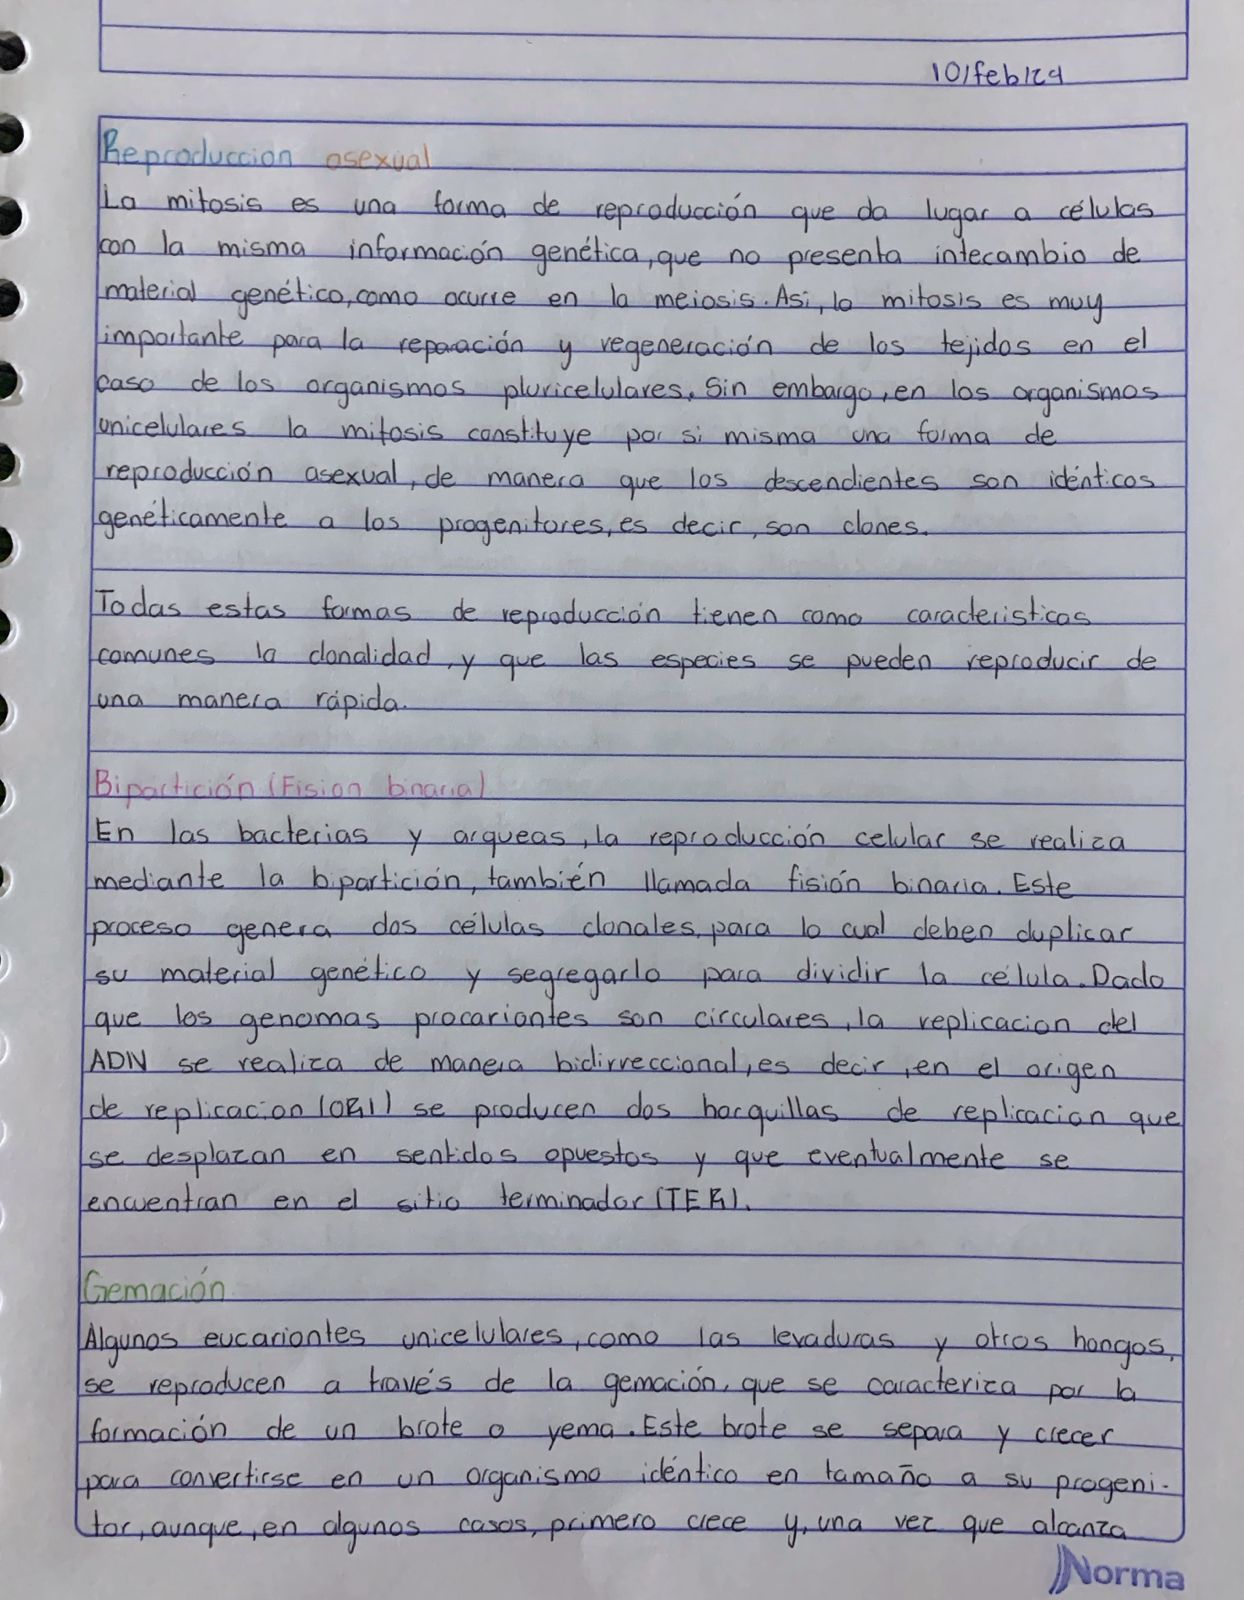 10/feb/24
Reproduccion asexual
La mitosis es una forma de reproducción que da lugar a células
con la misma información genética, que no presenta intecambio de
material genético, como ocurre en la meiosis. Asi, la mitosis es muy
importante para la reparación y regeneración de los tejidos en el
caso de los organismos pluricelulares. Sin embargo, en los organismos
unicelulares la mitosis constituye por si misma una forma de
reproducción asexual, de manera que los descendientes son idénticos
genéticamente a los progenitores, es decir, son clones.
Todas estas formas de reproducción tienen como caracteristicas
comunes la clonalidad, y que las especies se pueden reproducir de
una manera rápida.
Bipartición (Fision binaria)
En las bacterias y arqueas, la reproducción celular se realiza
mediante la bipartición, también llamada fisión binaria. Este
proceso genera dos células clonales, para lo cual deben duplicar
su material genético y segregarlo para dividir la célula. Dado
que los genomas procariontes son circulares, la replicacion del
ADN se realiza de manera bidirreccional, es decir, en el origen
de replicacion (ORI) se producen dos horquillas de replicacion que
se desplazan en sentidos opuestos y que eventualmente se
encuentran en el sitio terminador (TER).
Gemación
Algunos eucariontes unicelulares, como las levaduras y otros hongos,
se reproducen a través de la gemación, que se caracteriza por la
formación de un brote o yema. Este brote se separa y crecer
para convertirse en un organismo idéntico en tamaño a su progeni-
tor, aunque, en algunos casos, primero crece y, una vez que alcanza
Norma